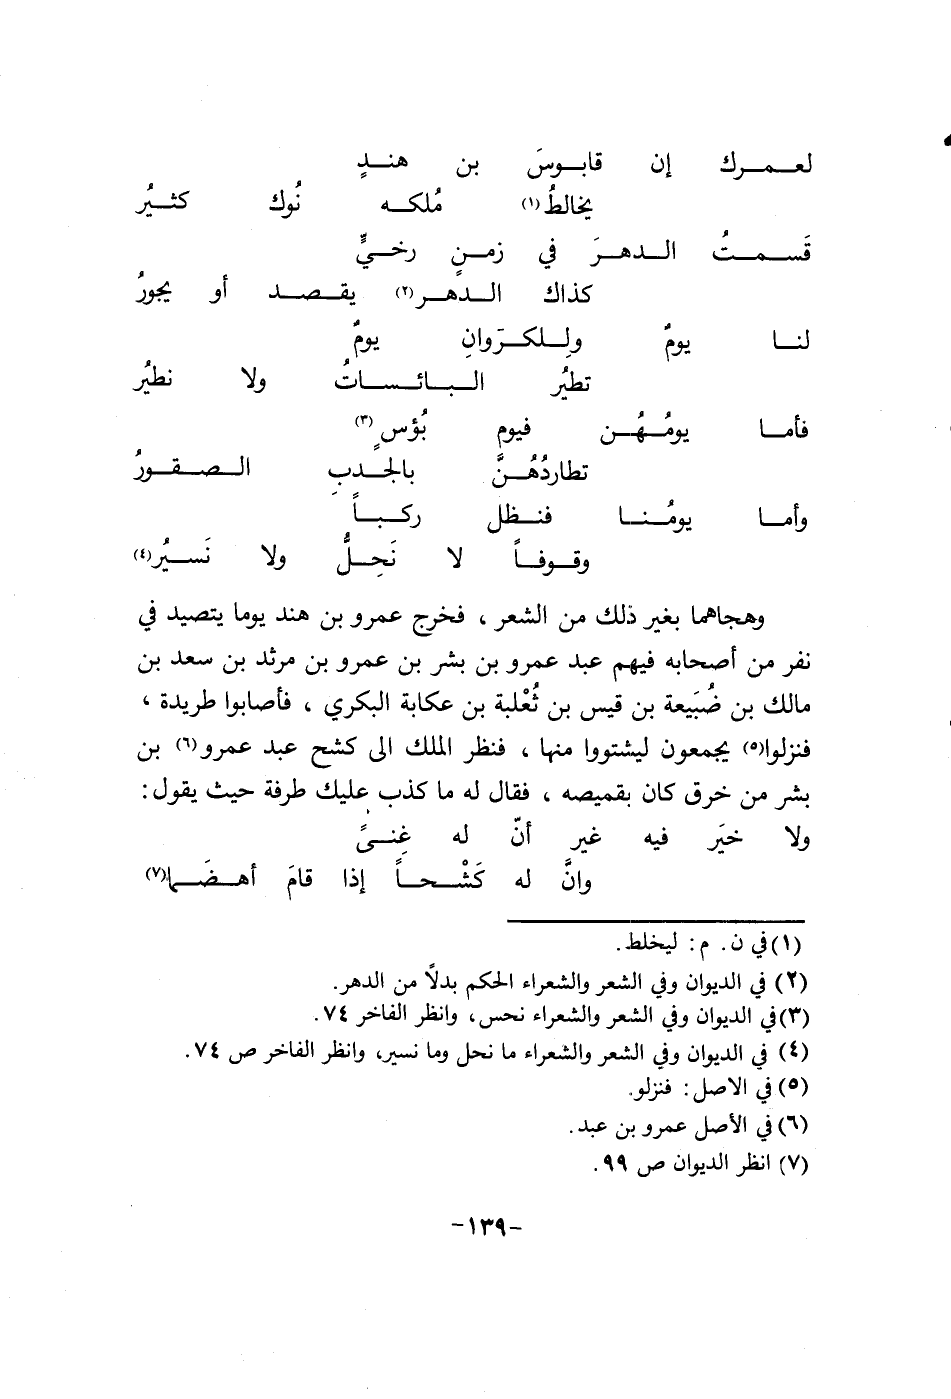 لعمرك إن قابوسَ بن هندٍ
يخالطُ(١) مُلكه نُوك كثيُر
قَسمتُ الدهرَ في زمنٍ رخيٍّ
كذاك الدهر(٢) يقصد أو يجورُ
لنا يومٌ ولِلكرَوانِ يومٌ
تطيُر البائساتُ ولا نطيُر
فأما يومُهُن فيوم بُؤسٍ(٣)
تطاردُهُنَّ بالجدبِ الصقورُ
وأما يومُنا فنظل ركباً
وقوفاً لا نَحِلُّ ولا نَسيُر(٤)
وهجاهما بغير ذلك من الشعر ، فخرج عمرو بن هند يوما يتصيد في
نفر من أصحابه فيهم عبد عمرو بن بشر بن عمرو بن مرثد بن سعد بن
مالك بن ضُبَيعة بن قيس بن ثُعْلبة بن عكابة البكري ، فأصابوا طريدة ،
فنزلوا(٥) يجمعون ليشتووا منها ، فنظر الملك الى كشح عبد عمرو(٦) بن
بشر من خرق كان بقميصه ، فقال له ما كذب عليك طرفة حيث يقول :
ولا خيَر فيه غير أنّ له غِنىً
وانَّ له كَشْحاً إذا قامَ أهضَما(٧)
(١) في ن. م: ليخلط.
(٢) في الديوان وفي الشعر والشعراء الحكم بدلًا من الدهر.
(٣) في الديوان وفي الشعر والشعراء نحس، وانظر الفاخر ٧٤.
(٤) في الديوان وفي الشعر والشعراء ما نحل وما نسير، وانظر الفاخر ص ٧٤.
(٥) في الاصل: فنزلو.
(٦) في الأصل عمرو بن عبد.
(٧) انظر الديوان ص ٩٩.
-١٣٩-